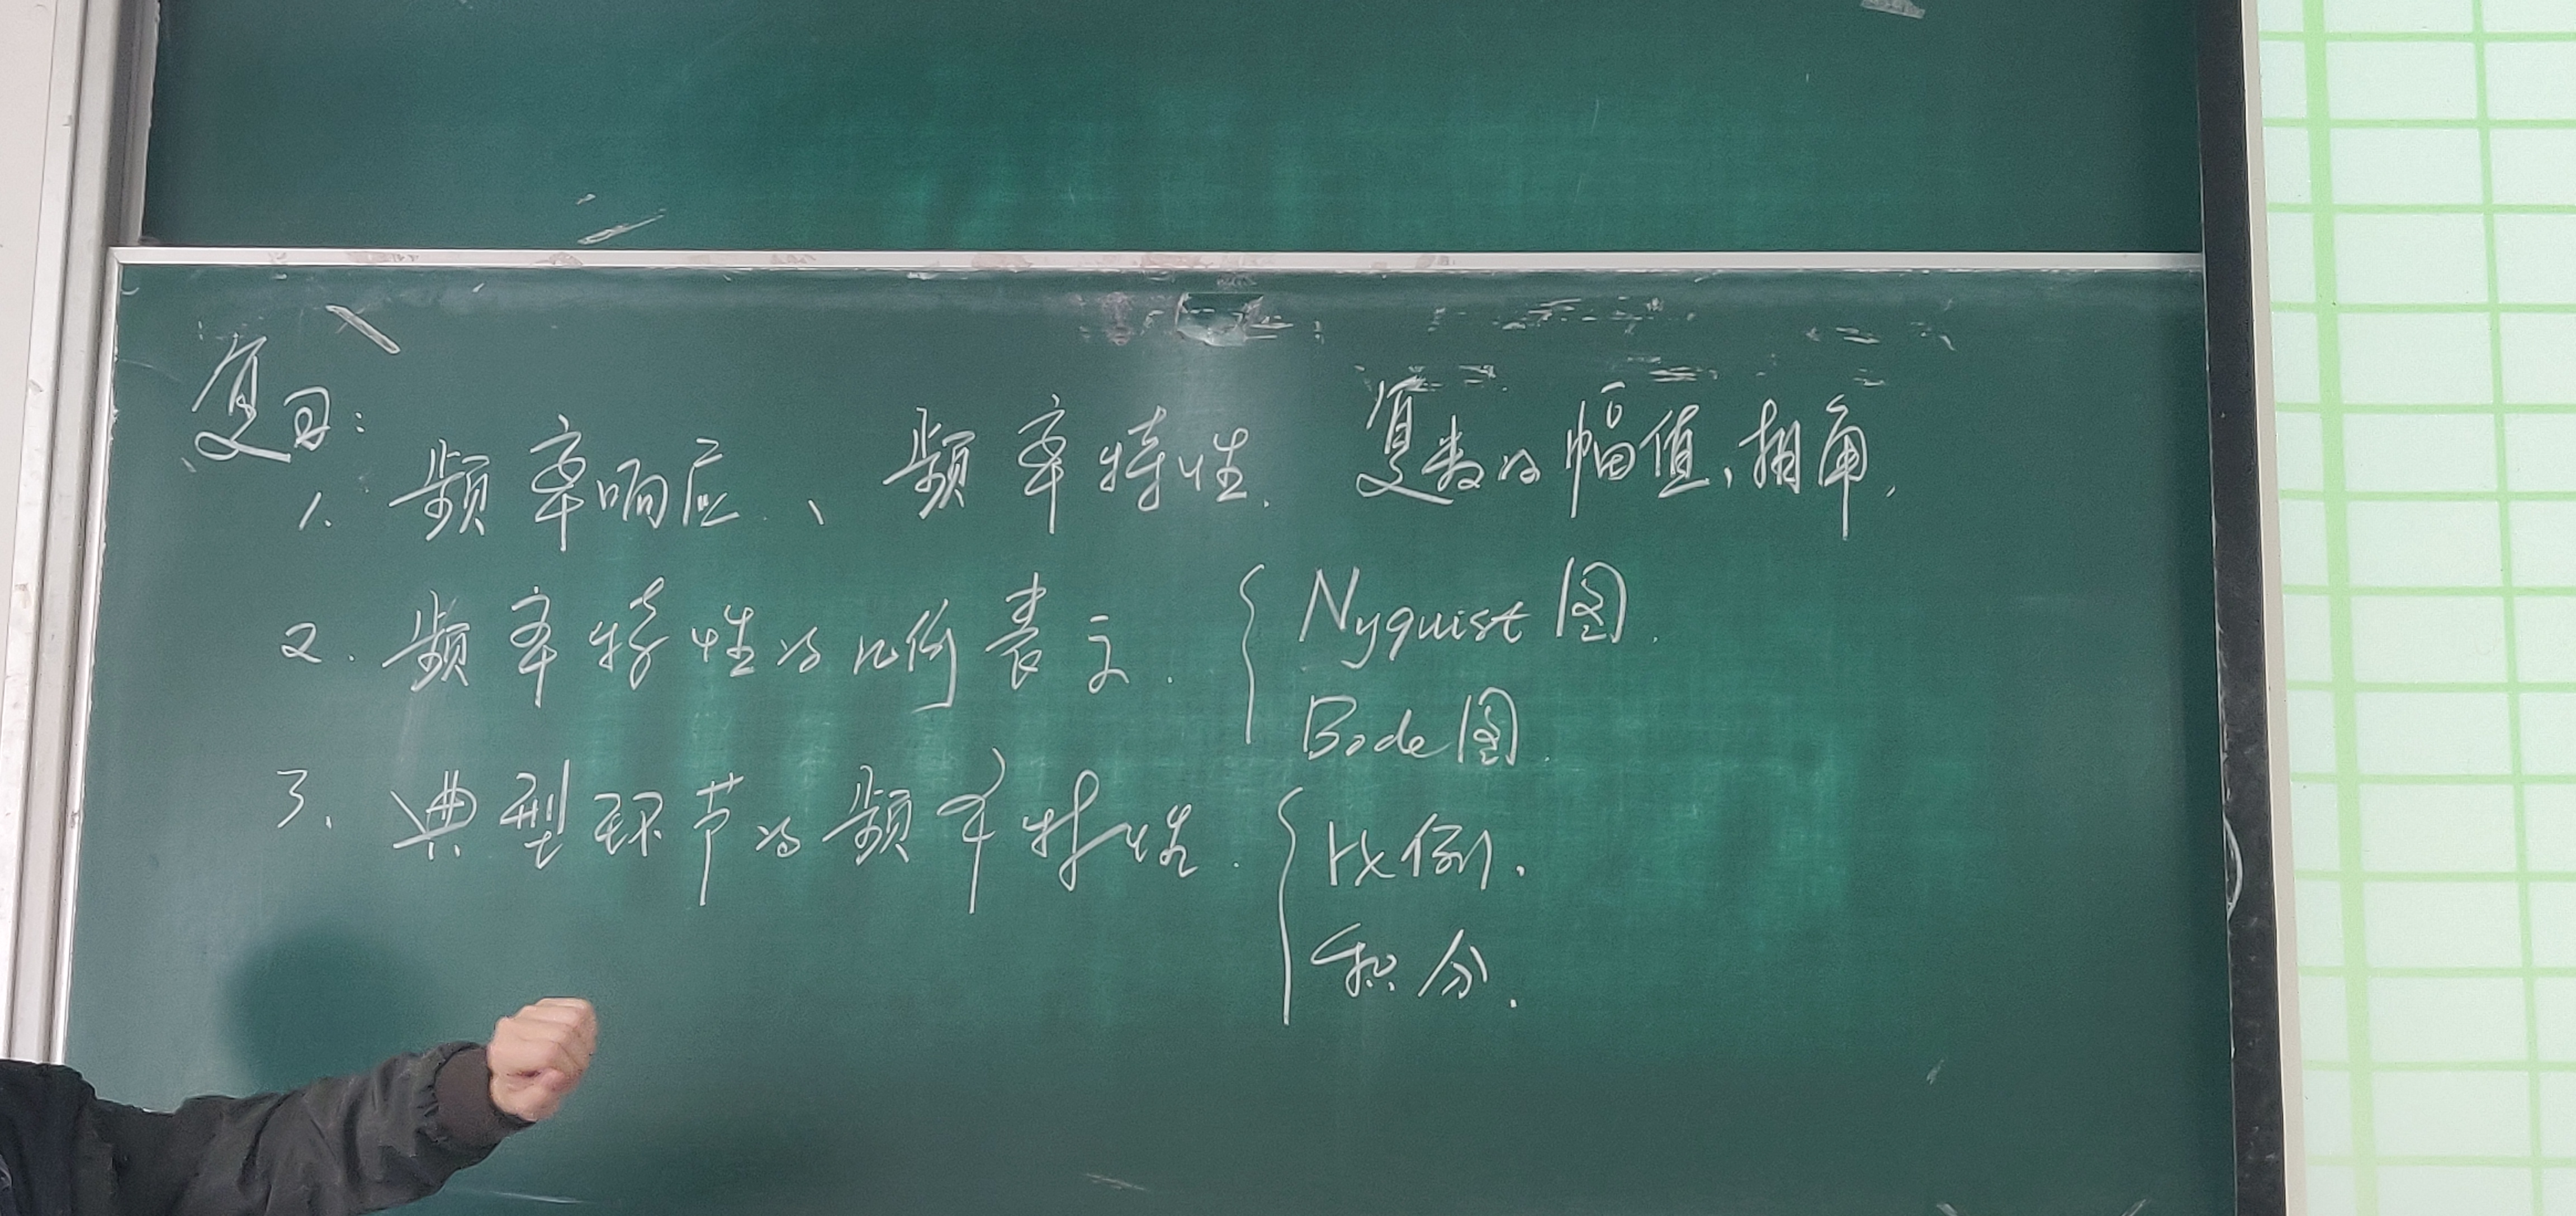 复习:
1. 频率响应、频率特性. 复数的幅值、相角,
2. 频率特性的几何表示. { Nyquist图.
Bode图.
3. 典型环节的频率特性. { 比例.
积分.